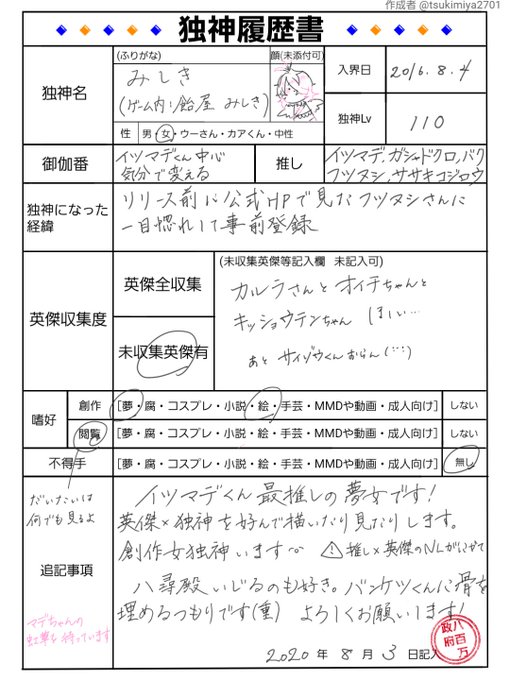 作成者 @tsukimiya2701
独神履歴書
独神名
(ふりがな)
みしき
(ゲーム内:飴屋 みしき)
顔(未添付可)
性 男・女・ウーさん・カアくん・中性
入界日
2016.8.4
独神Lv
110
御伽番
イツマデくん中心
気分で変える
推し
イツマデ,ガシャドクロ,バク
フツヌシ,ササキコジロウ
独神になった
経緯
リリース前に公式HPで見たフツヌシさんに
一目惚れして事前登録
英傑収集度
英傑全収集
未収集英傑有
(未収集英傑等記入欄 未記入可)
カルラさんとオイチちゃんと
キッショウテンちゃん ほしい…
あと サイゾウくんおらん(´:`)
嗜好
創作
[夢・腐・コスプレ・小説・絵・手芸・MMDや動画・成人向け]
しない
閲覧
[夢・腐・コスプレ・小説・絵・手芸・MMDや動画・成人向け]
しない
不得手
[夢・腐・コスプレ・小説・絵・手芸・MMDや動画・成人向け]
無し
だいたいは
何でも見るよ
追記事項
マデちゃんの
虹箪を待っています
イツマデくん最推しの夢女です!
英傑×独神を好んで描いたり見たりします。
創作女独神います〜 ⚠推し×英傑のNLがにがて
八尋殿いじるのも好き。バンケツくんに骨を
埋めるつもりです(重) よろしくお願いします!
2020 年 8 月 3 日記入
八百万
政府